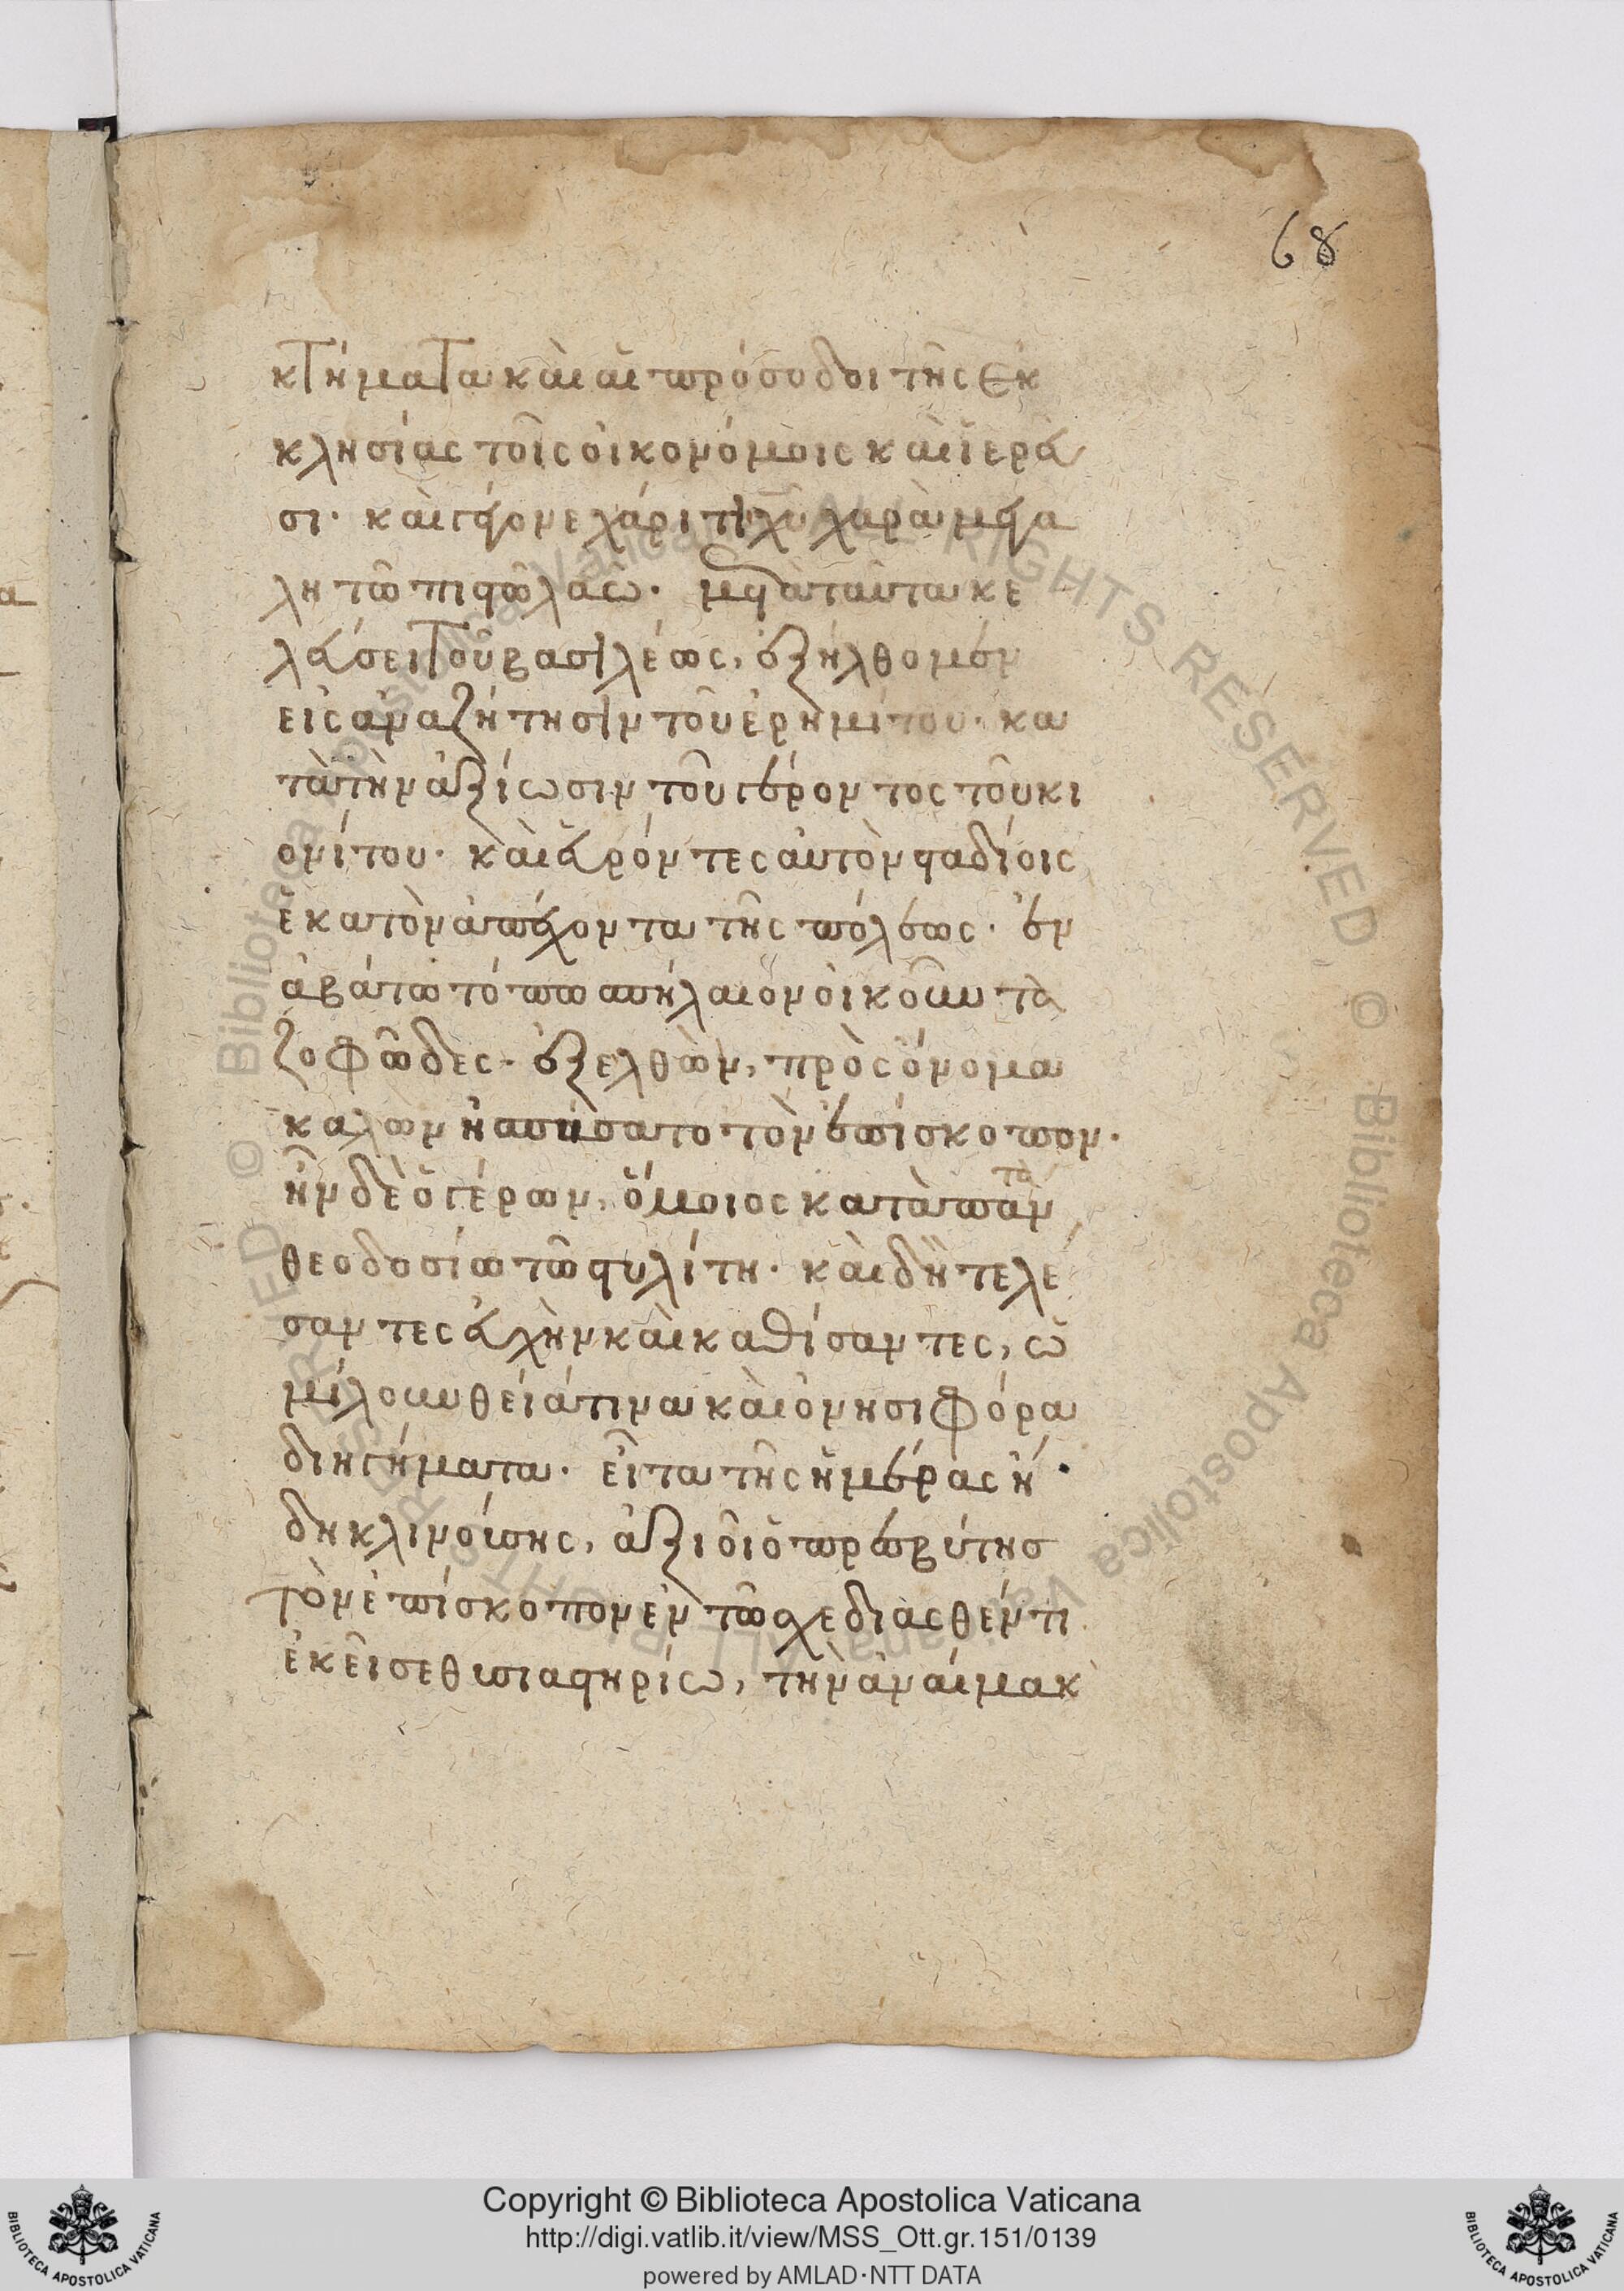 68
κτήματα καὶ αἱ πρόσοδοι τῆς ἐκ
κλησίας τοῖς οἰκονόμοις καὶ ἱερεῦ
σι· καὶ γέγονε χάριτι χυ χαρὰ μεγά
λη τῶ πιστῶ λαῶ· μετὰ ταῦτα κε
λεύσει τοῦ βασιλέως, ἐξήλθομεν
εἰς ἀναζήτησιν τοῦ ἐρημίτου· κα
τὰ τὴν ἀξίωσιν τοῦ γέροντος τοῦ κι
ονίτου· καὶ εὑρόντες αὐτὸν σταδίοις
ἑκατὸν ἀπέχοντα τῆς πόλεως· ἐν
ἀβάτω τόπω σπήλαιον οἰκοῦντα
ζοφῶδες· ἐξελθὼν, πρὸς ὄνομα
καλῶν ἠσπάσατο τὸν ἐπίσκοπον·
ἦν δὲ ὁ γέρων, ὅμοιος κατὰ πάντα
θεοδοσίω τῶ στυλίτη· καὶ δὴ τελέ
σαντες εὐχὴν καὶ καθίσαντες, ὡ
μίλουν θεῖά τινα καὶ ὀνησιφόρα
διηγήματα· εἶτα τῆς ἡμέρας ἤ
δη κλινούσης, ἀξιοῖ ὁ πρεσβύτης
τὸν ἐπίσκοπον ἐν τῶ σχεδιασθέντι
ἐκεῖσε θυσιαστηρίω, τὴν ἀναίμακ
Copyright © Biblioteca Apostolica Vaticana
http://digi.vatlib.it/view/MSS_Ott.gr.151/0139
powered by AMLAD·NTT DATA
BIBLIOTECA APOSTOLICA VATICANA
BIBLIOTECA APOSTOLICA VATICANA
© Biblioteca Apostolica Vaticana ALL RIGHTS RESERVED © Biblioteca Apostolica Vaticana ALL RIGHTS RESERVED